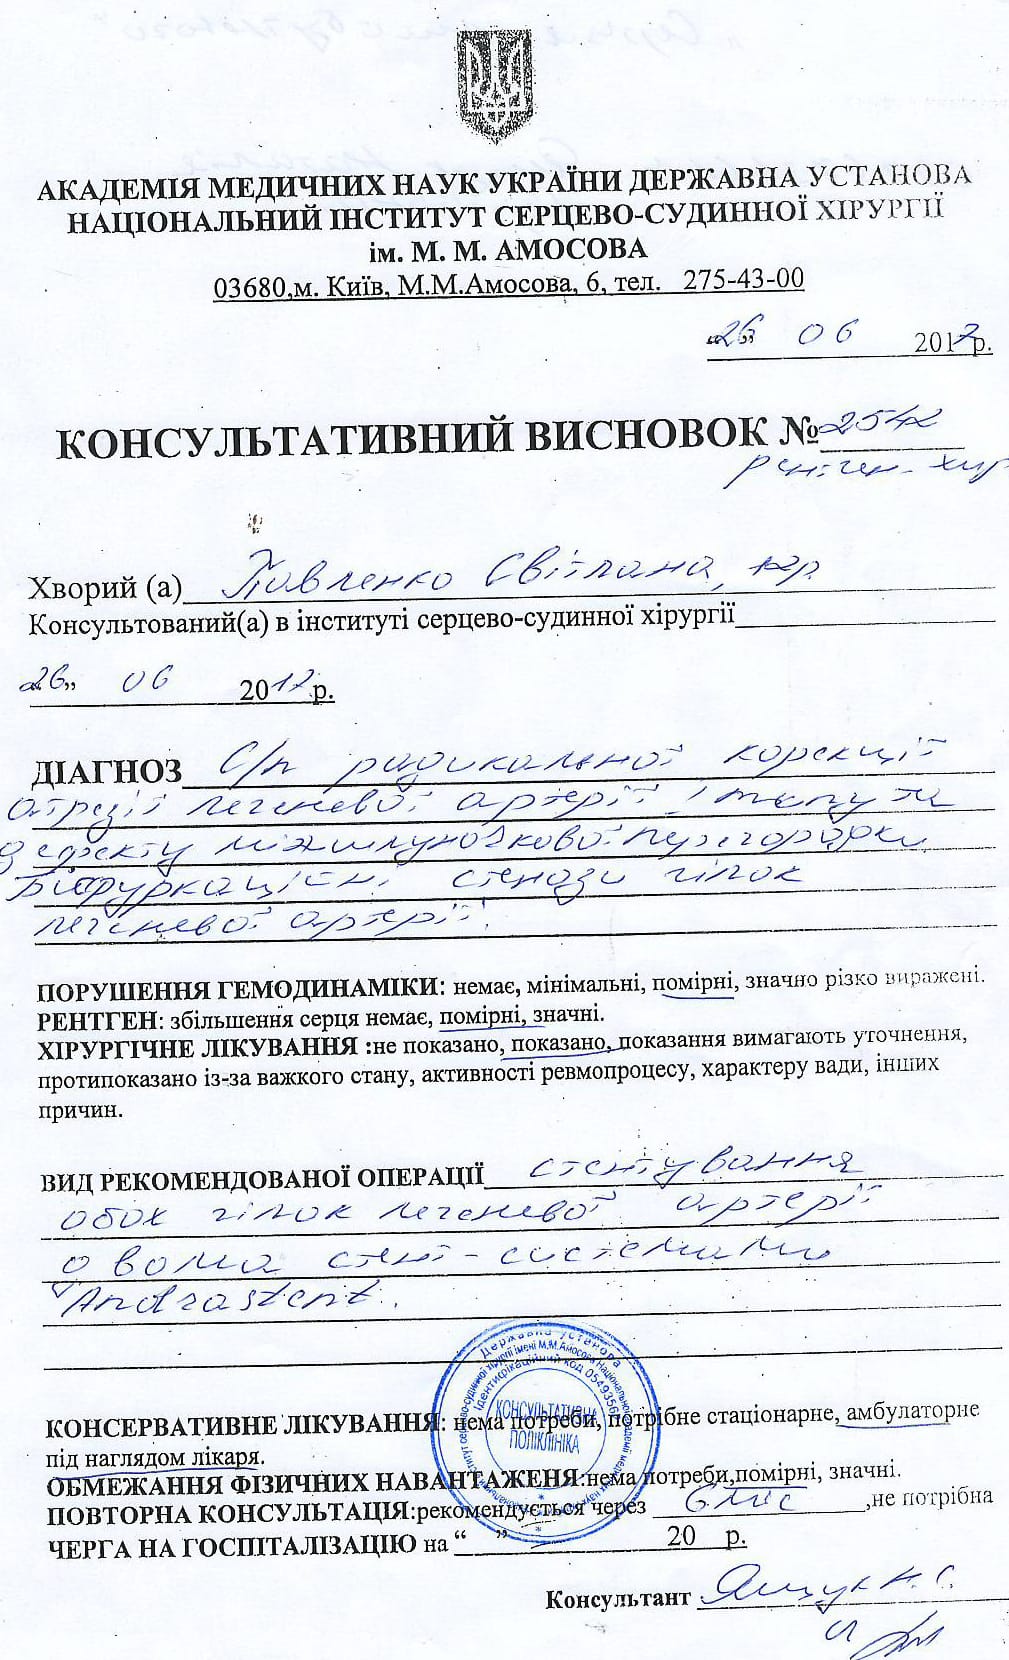 АКАДЕМІЯ МЕДИЧНИХ НАУК УКРАЇНИ ДЕРЖАВНА УСТАНОВА
НАЦІОНАЛЬНИЙ ІНСТИТУТ СЕРЦЕВО-СУДИННОЇ ХІРУРГІЇ
ім. М. М. АМОСОВА
03680,м. Київ, М.М.Амосова, 6, тел. 275-43-00
„26” 06 2017р.
КОНСУЛЬТАТИВНИЙ ВИСНОВОК № 2542
рентген-хир
Хворий (а) Павленко Світлана,
Консультований(а) в інституті серцево-судинної хірургії
„26” 06 2017р.
ДІАГНОЗ С/п радикальної корекції
атрезії легеневої артерії І типу та
дефекту міжшлуночкової перегородки,
Біфуркаційні стенози гілок
легеневої артерії.
ПОРУШЕННЯ ГЕМОДИНАМІКИ: немає, мінімальні, помірні, значно різко виражені.
РЕНТГЕН: збільшення серця немає, помірні, значні.
ХІРУРГІЧНЕ ЛІКУВАННЯ :не показано, показано, показання вимагають уточнення,
протипоказано із-за важкого стану, активності ревмопроцесу, характеру вади, інших
причин.
ВИД РЕКОМЕНДОВАНОЇ ОПЕРАЦІЇ стентування
обох гілок легеневої артерії
двома стент-системами
Andrastent.
Державна установа
Ідентифікаційний код 05493562
КОНСУЛЬТАТИВНА
ПОЛІКЛІНІКА
КОНСЕРВАТИВНЕ ЛІКУВАННЯ: нема потреби, потрібне стаціонарне, амбулаторне
під наглядом лікаря.
ОБМЕЖАННЯ ФІЗИЧНИХ НАВАНТАЖЕНЯ:нема потреби,помірні, значні.
ПОВТОРНА КОНСУЛЬТАЦІЯ:рекомендується через 6 міс ,не потрібна
ЧЕРГА НА ГОСПІТАЛІЗАЦІЮ на “ ” 20 р.
Консультант Ящук Н.С.